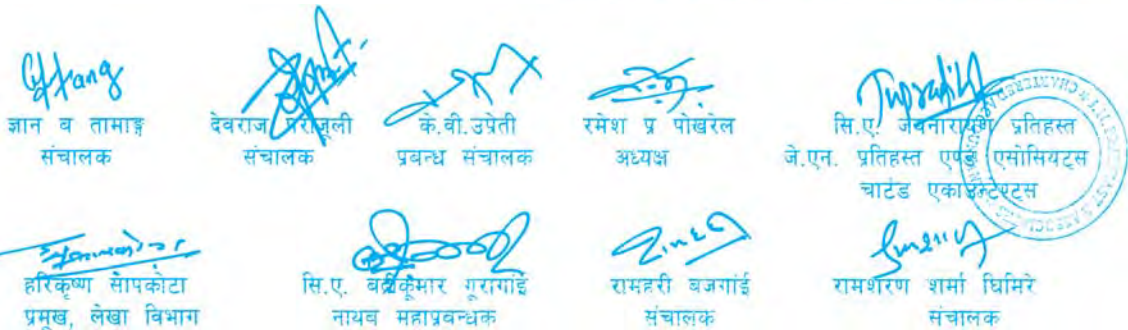 ज्ञान व तामाङ्ग
संचालक
देवराज पराजूली
संचालक
के.वी.उप्रेती
प्रबन्ध संचालक
रमेश प्र पोखरेल
अध्यक्ष
सि.ए. जयनारायण प्रतिहस्त
जे.एन. प्रतिहस्त एण्ड एसोसियट्स
चार्टड एकाउन्टेण्ट्स
हरिकृष्ण सापकोटा
प्रमुख, लेखा विभाग
सि.ए. बद्रीकुमार गुरागाई
नायब महाप्रबन्धक
रामहरी बजगांई
संचालक
रामशरण शर्मा घिमिरे
संचालक